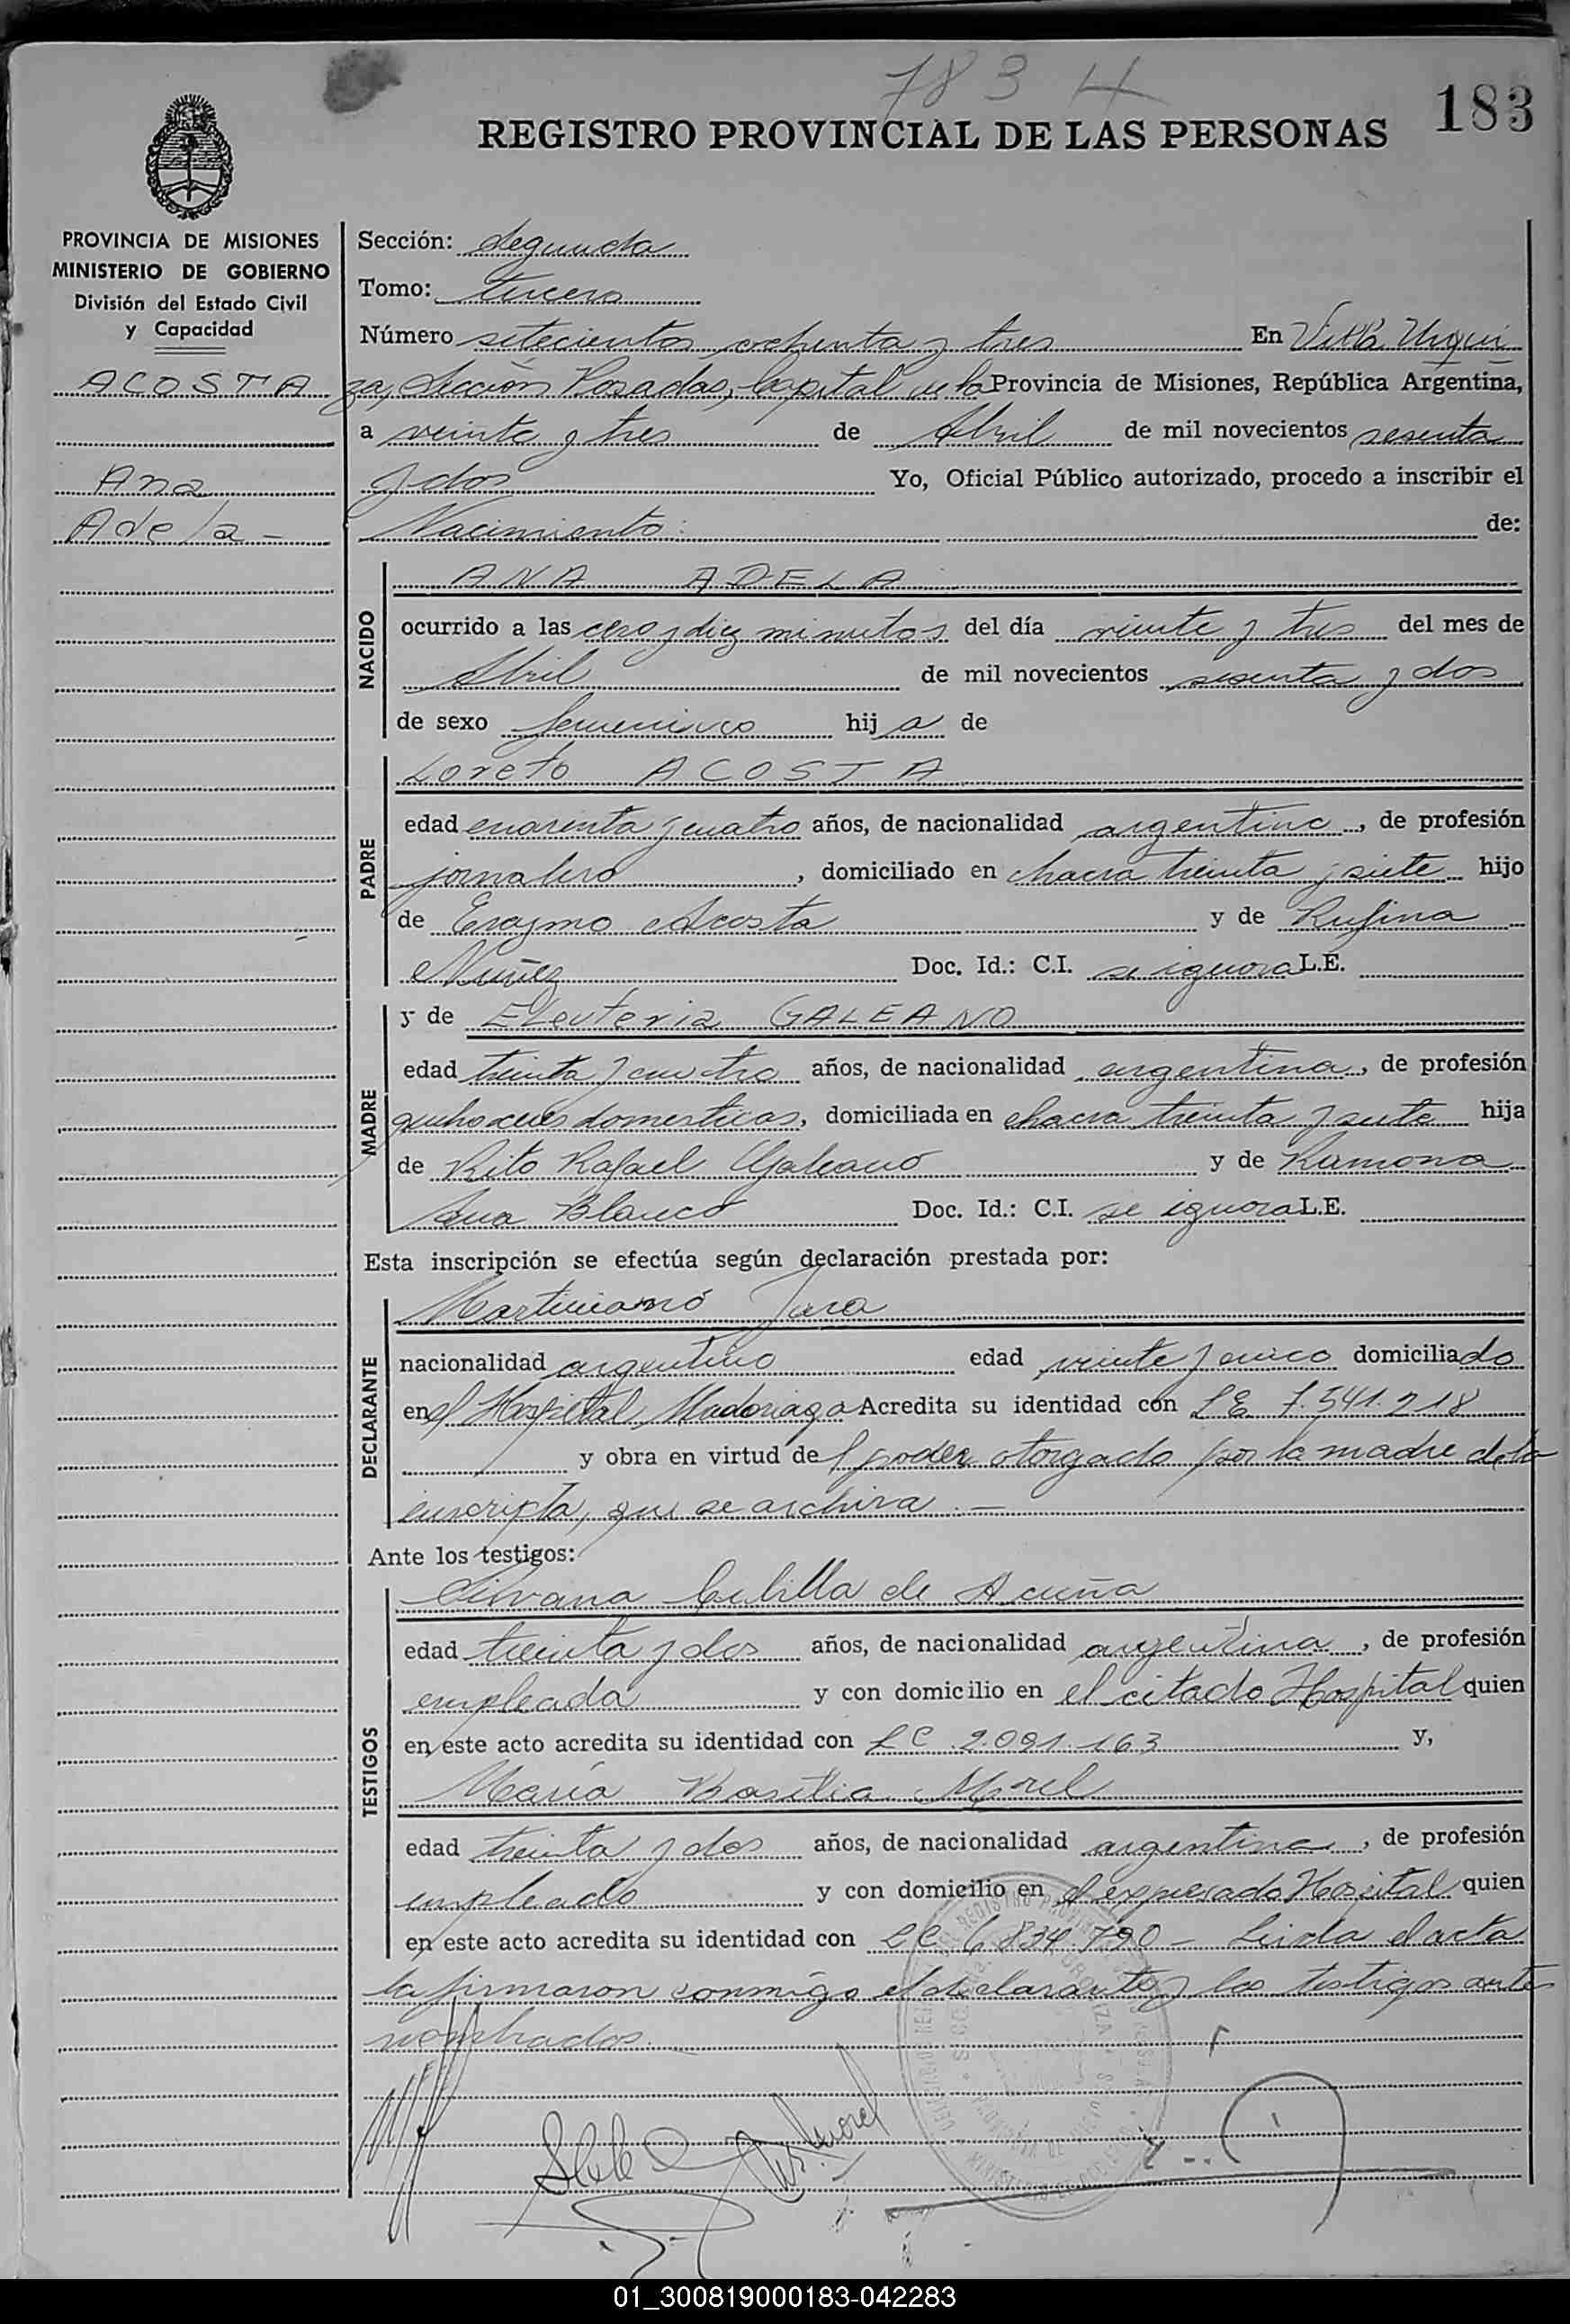 783 4
183
REGISTRO PROVINCIAL DE LAS PERSONAS
PROVINCIA DE MISIONES
MINISTERIO DE GOBIERNO
División del Estado Civil
y Capacidad
ACOSTA
Ana
Adela -
Sección: Segunda
Tomo: tercero
Número setecientos ochenta y tres En Villa Urqui
za, Sección Posadas, Capital de la Provincia de Misiones, República Argentina,
a veinte y tres de Abril de mil novecientos sesenta
y dos Yo, Oficial Público autorizado, procedo a inscribir el
Nacimiento: de:
NACIDO
ANA ADELA
ocurrido a las cero y diez minutos del día veinte y tres del mes de
Abril de mil novecientos sesenta y dos
de sexo femenino hij a de
PADRE
Loreto ACOSTA
edad cuarenta y cuatro años, de nacionalidad argentino, de profesión
jornalero, domiciliado en chacra treinta y siete hijo
de Erasmo Acosta y de Rufina
Nuñez Doc. Id.: C.I. se ignora L.E.
MADRE
y de Eleuteria GALEANO
edad treinta y cuatro años, de nacionalidad argentina, de profesión
quehaceres domesticos, domiciliada en chacra treinta y siete hija
de Rito Rafael Galeano y de Ramona
Blanco Doc. Id.: C.I. se ignora L.E.
Esta inscripción se efectúa según declaración prestada por:
DECLARANTE
Martiniano Jara
nacionalidad argentino edad veinte y cinco domiciliado
en el Hospital Madariaga Acredita su identidad con L E 7.541.218
y obra en virtud del poder otorgado por la madre de la
inscripta, que se archiva. —
Ante los testigos:
TESTIGOS
Silvana Cubilla de Acuña
edad treinta y dos años, de nacionalidad argentina, de profesión
empleada y con domicilio en el citado Hospital quien
en este acto acredita su identidad con L C 2.091.163 y,
María Basilia Morel
edad treinta y dos años, de nacionalidad argentina, de profesión
empleada y con domicilio en el expresado Hospital quien
en este acto acredita su identidad con L C 6.834.790 - Leida el acta
la firmaron conmigo el declarante y los testigos ante
nombrados.
01_300819000183-042283